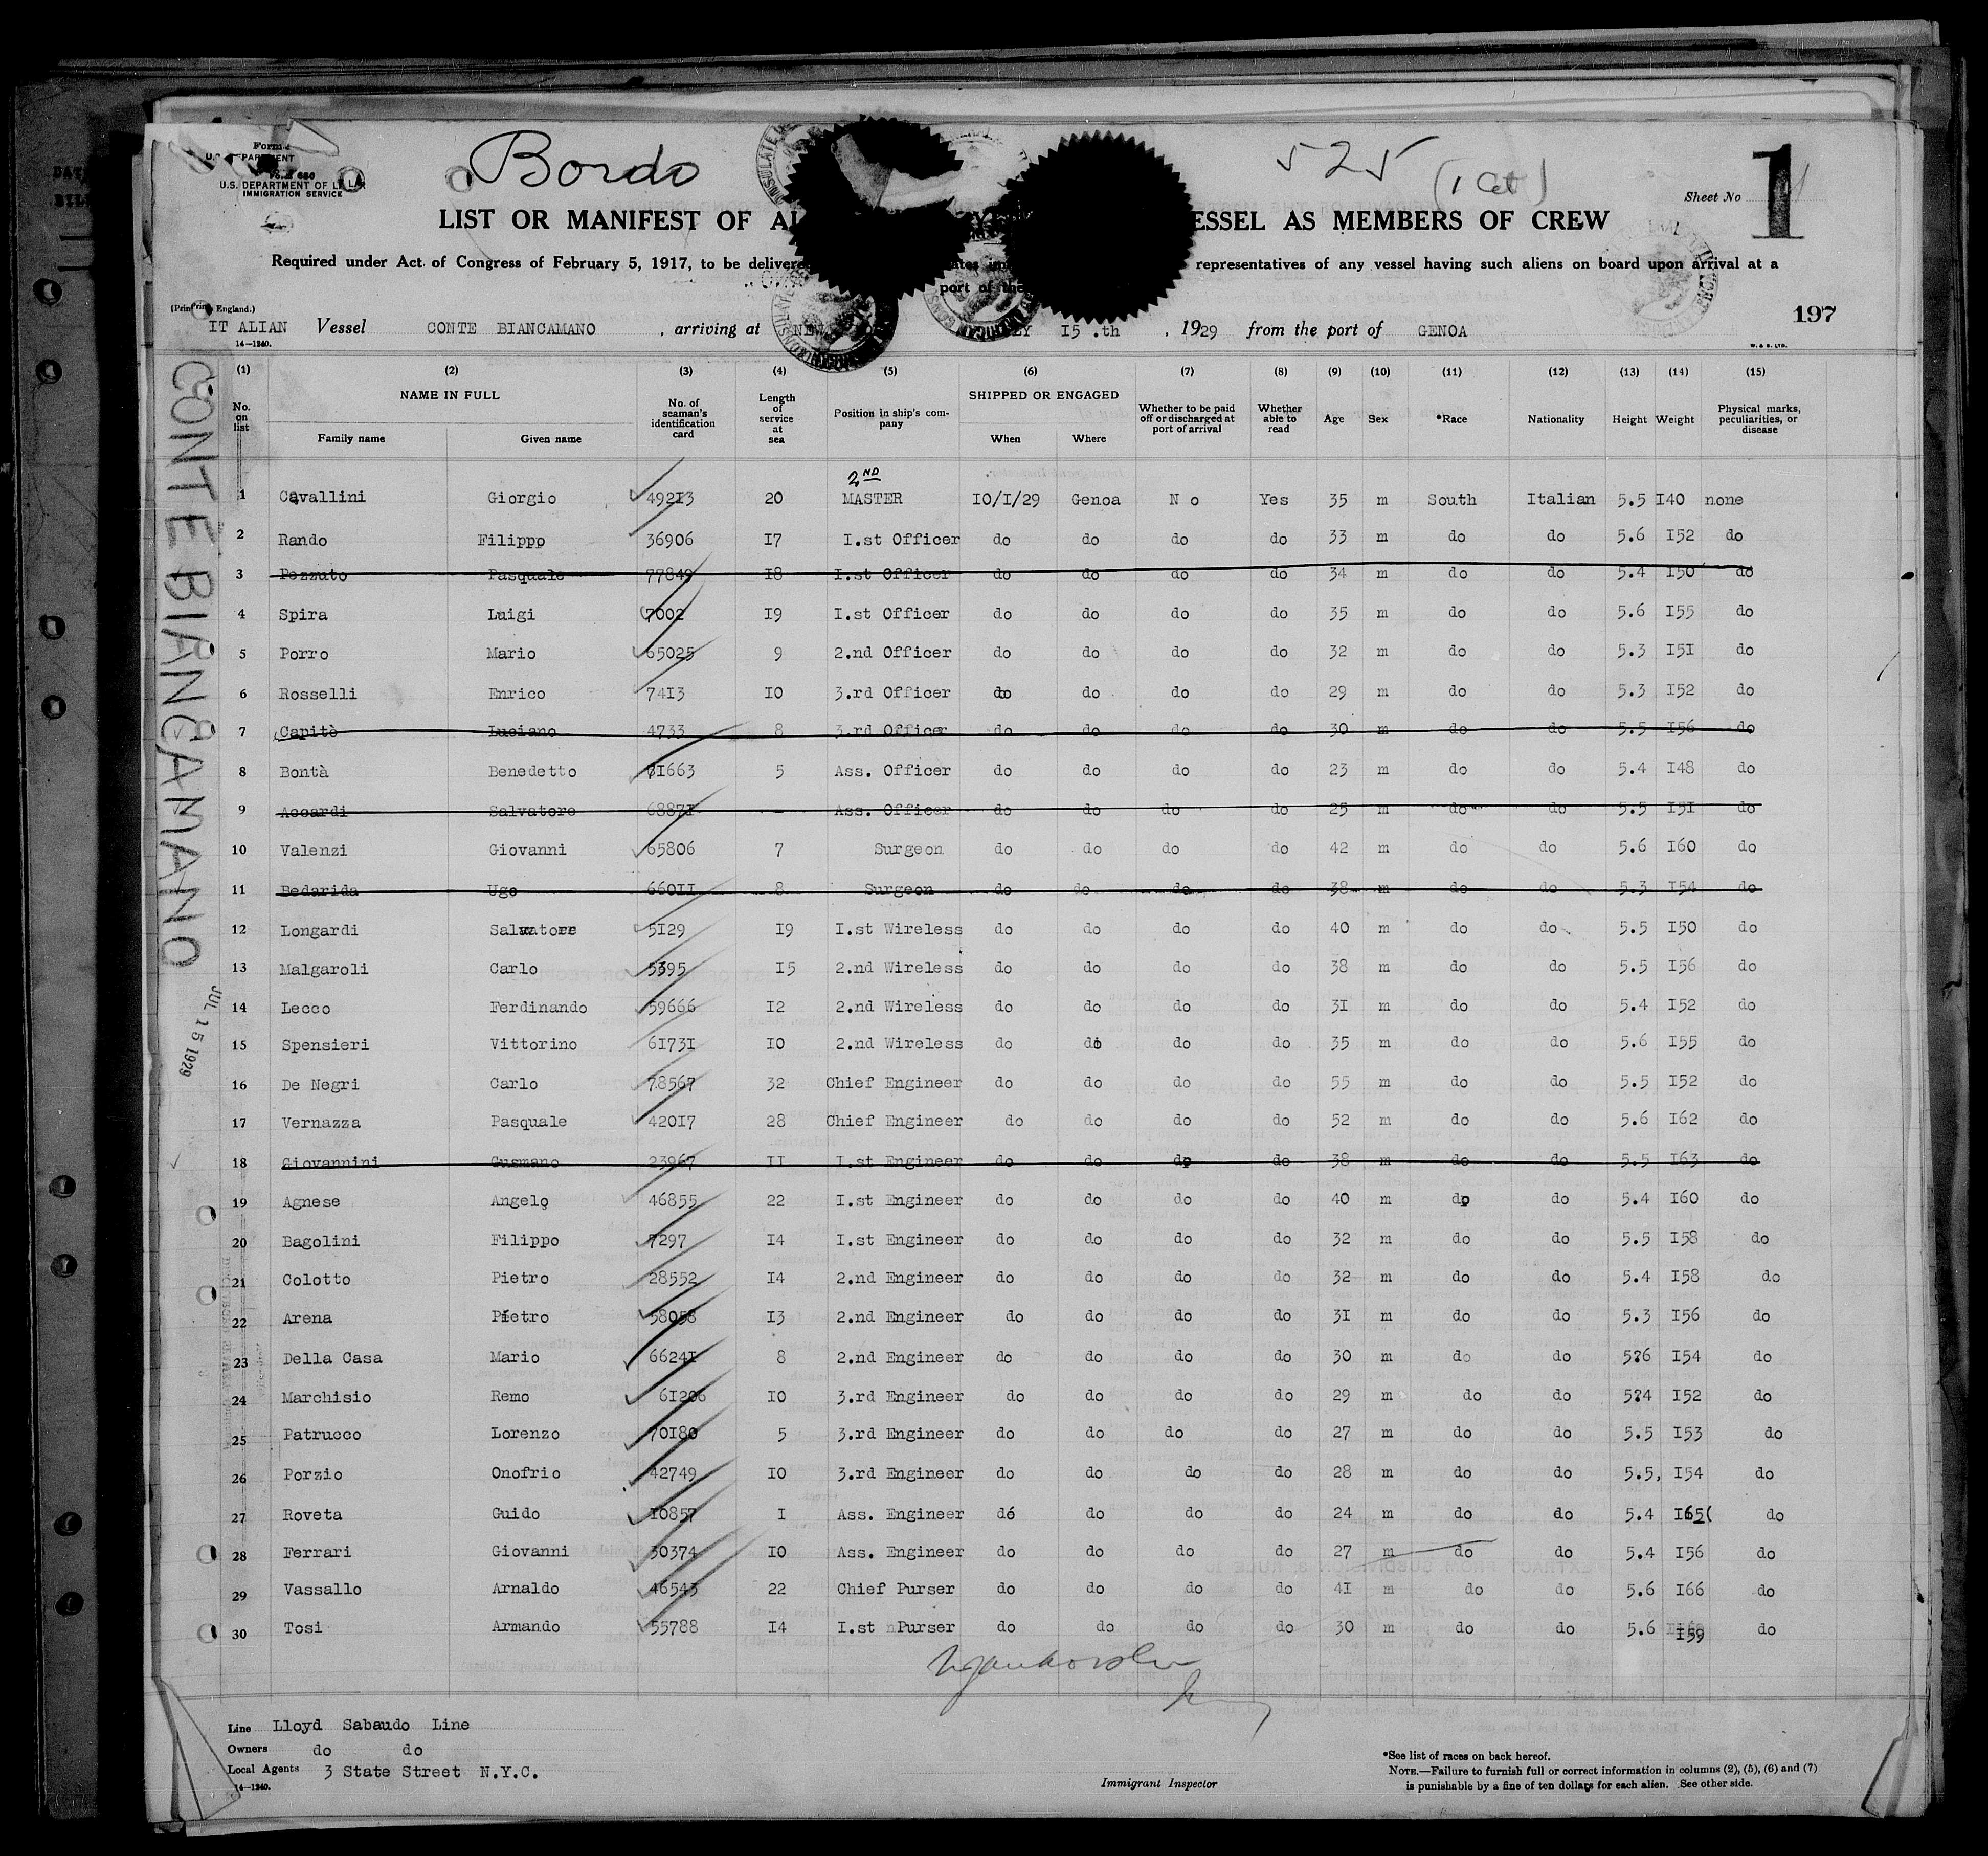 Bordo
525 (1 Cet)
Form 680
U.S. DEPARTMENT OF LABOR
IMMIGRATION SERVICE
Sheet No 1
LIST OR MANIFEST OF AL ESSEL AS MEMBERS OF CREW
Required under Act of Congress of February 5, 1917, to be delivered representatives of any vessel having such aliens on board upon arrival at a
port of the
(Printed in England.)
197
IT ALIAN Vessel CONTE BIANCAMANO , arriving at NEW LY I5 .th , 1929 from the port of GENOA
14—1240.
W. & S. LTD.
(1) (2) (3) (4) (5) (6) (7) (8) (9) (10) (11) (12) (13) (14) (15)
No. on list NAME IN FULL Family name Given name No. of seaman's identification card Length of service at sea Position in ship's company SHIPPED OR ENGAGED When Where Whether to be paid off or discharged at port of arrival Whether able to read Age Sex *Race Nationality Height Weight Physical marks, peculiarities, or disease
2ND
1 Cavallini Giorgio 492I3 20 MASTER IO/I/29 Genoa N o Yes 35 m South Italian 5.5 I40 none
2 Rando Filippo 36906 I7 I.st Officer do do do do 33 m do do 5.6 I52 do
3 Pozzuto Pasquale 77849 I8 I.st Officer do do do do 34 m do do 5.4 I50 do
4 Spira Luigi 7002 I9 I.st Officer do do do do 35 m do do 5.6 I55 do
5 Porro Mario 65025 9 2.nd Officer do do do do 32 m do do 5.3 I5I do
6 Rosselli Enrico 74I3 IO 3.rd Officer do do do do 29 m do do 5.3 I52 do
7 Capitò Luciano 4733 8 3.rd Officer do do do do 30 m do do 5.5 I56 do
8 Bontà Benedetto 7I663 5 Ass. Officer do do do do 23 m do do 5.4 I48 do
9 Accardi Salvatore 6887I - Ass. Officer do do do do 25 m do do 5.5 I5I do
10 Valenzi Giovanni 65806 7 Surgeon do do do do 42 m do do 5.6 I60 do
11 Bedarida Ugo 660II 8 Surgeon do do do do 38 m do do 5.3 I54 do
12 Longardi Salvatore 5I29 I9 I.st Wireless do do do do 40 m do do 5.5 I50 do
13 Malgaroli Carlo 5395 I5 2.nd Wireless do do do do 38 m do do 5.5 I56 do
14 Lecco Ferdinando 59666 I2 2.nd Wireless do do do do 3I m do do 5.4 I52 do
15 Spensieri Vittorino 6I73I IO 2.nd Wireless do do do do 35 m do do 5.6 I55 do
16 De Negri Carlo 78567 32 Chief Engineer do do do do 55 m do do 5.5 I52 do
17 Vernazza Pasquale 420I7 28 Chief Engineer do do do do 52 m do do 5.6 I62 do
18 Giovannini Gusmano 23967 II I.st Engineer do do do do 38 m do do 5.5 I63 do
19 Agnese Angelo 46855 22 I.st Engineer do do do do 40 m do do 5.4 I60 do
20 Bagolini Filippo 7297 I4 I.st Engineer do do do do 32 m do do 5.5 I58 do
21 Colotto Pietro 28552 I4 2.nd Engineer do do do do 32 m do do 5.4 I58 do
22 Arena Pietro 58058 I3 2.nd Engineer do do do do 3I m do do 5.3 I56 do
23 Della Casa Mario 6624I 8 2.nd Engineer do do do do 30 m do do 5?6 I54 do
24 Marchisio Remo 6I206 IO 3.rd Engineer do do do do 29 m do do 5?4 I52 do
25 Patrucco Lorenzo 70I80 5 3.rd Engineer do do do do 27 m do do 5.5 I53 do
26 Porzio Onofrio 42749 IO 3.rd Engineer do do do do 28 m do do 5.5, I54 do
27 Roveta Guido I0857 I Ass. Engineer dó do do do 24 m do do 5.4 I65( do
28 Ferrari Giovanni 30374 IO Ass. Engineer do do do do 27 m do do 5.4 I56 do
29 Vassallo Arnaldo 46543 22 Chief Purser do do do do 4I m do do 5.6 I66 do
30 Tosi Armando 55788 I4 I.st Purser do do do do 30 m do do 5.6 I59 do
CONTE BIANCAMANO
JUL 15 1929
Line Lloyd Sabaudo Line
Owners do do
Local Agents 3 State Street N.Y.C.
14—1240.
Immigrant Inspector
*See list of races on back hereof.
NOTE.—Failure to furnish full or correct information in columns (2), (5), (6) and (7)
is punishable by a fine of ten dollars for each alien. See other side.